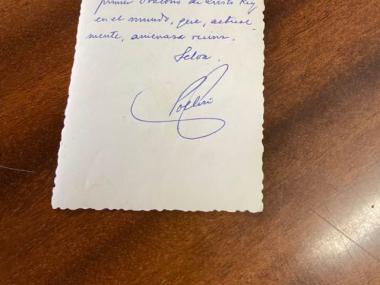 primer Oratorio de Cristo Rey
en el mundo, que, actual-
mente, amenaza ruina.
Selva.